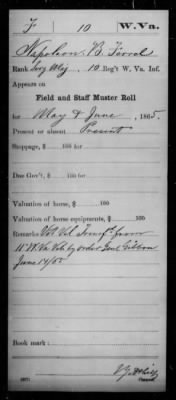 F 10 W. Va.
Napoleon B.
Rank Serg Maj, 10 Reg't W. Va. Inf.
Appears on
Field and Staff Muster Roll
for May & June, 1865.
Present or absent Present
Stoppage, $ 100 for
Due Gov't, $ 100 for
Valuation of horse, $ 100
Valuation of horse equipments, $ 100
Remarks Vet Vol from
11 W. Va. Vols by order Genl Gibbon
June 14/65
Book mark:
Copyist.